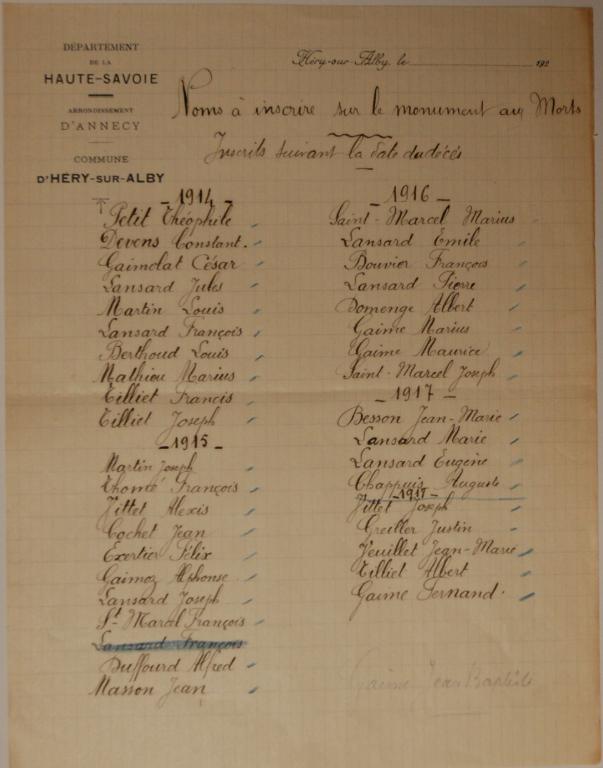 DÉPARTEMENT
DE LA
HAUTE-SAVOIE
ARRONDISSEMENT
D'ANNECY
COMMUNE
D'HÉRY-SUR-ALBY
Héry-sur-Alby, le 192
Noms à inscrire sur le monument aux Morts
Inscrits suivant la date du décés
- 1914 -
Petit Théophile
Devens Constant.
Gaimolat César
Lansard Jules
Martin Louis
Lansard François
Berthoud Louis
Mathieu Marius
Tilliet Francis
Tilliet Joseph
- 1915 -
Martin Joseph
Thomé François
Jittet Alexis
Cochet Jean
Exertier Félix
Gaimoz Alphonse
Lansard Joseph
St-Marcel François
Lansard François
Duffourd Alfred
Masson Jean
- 1916 -
Saint-Marcel Marius
Lansard Emile
Bouvier François
Lansard Pierre
Domenge Albert
Gaime Marius
Gaime Maurice
Saint-Marcel Joseph
- 1917 -
Besson Jean-Marie
Lansard Marie
Lansard Eugène
Chappuis Auguste
- 1917 -
Jittet Joseph
Greiller Justin
Feuillet Jean-Marie
Tilliet Albert
Gaime Fernand.
Gaime Jean Baptiste